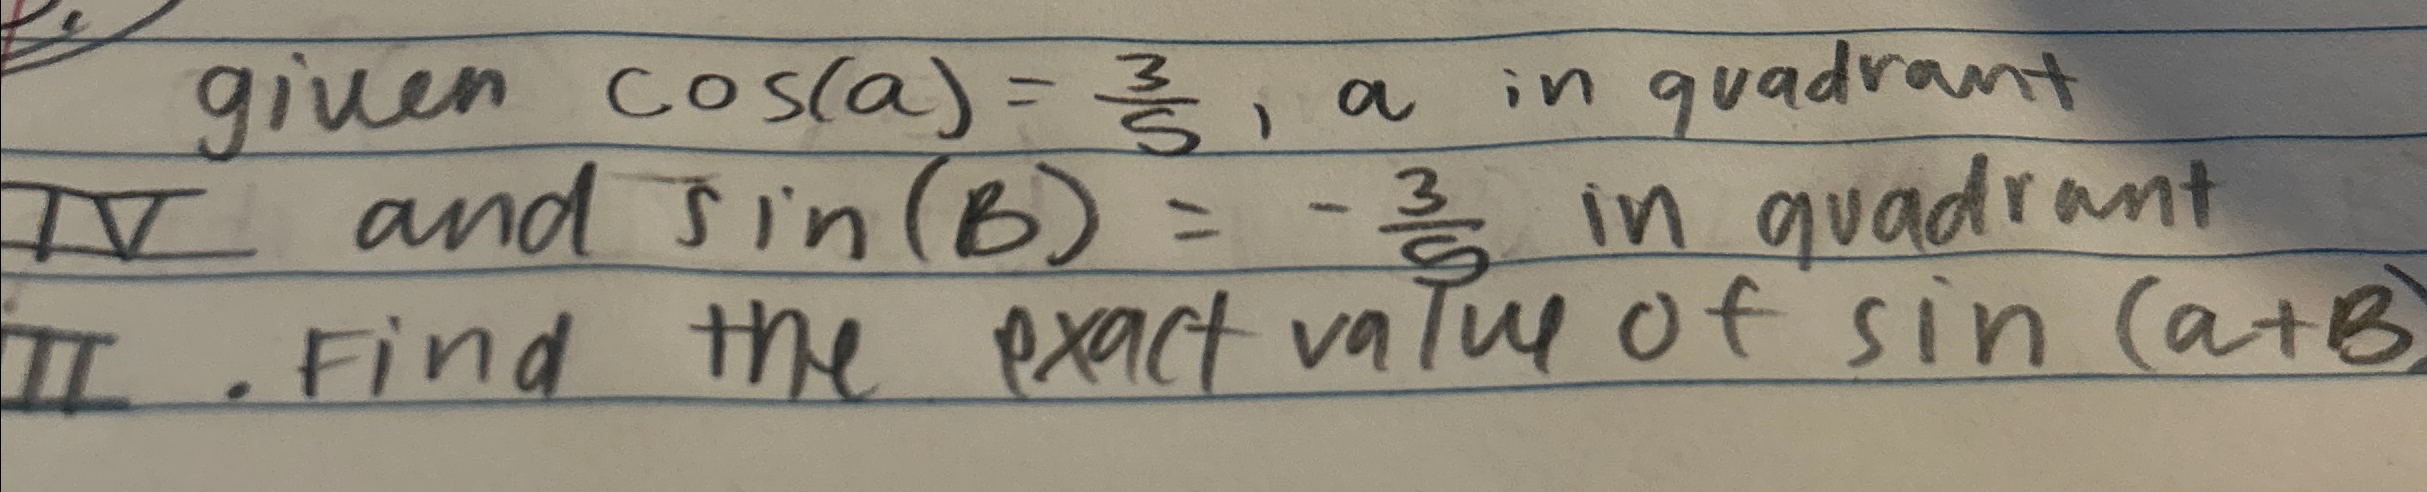 given cos(a) = 3/5, a in quadrant
IV and sin(B) = - 3/5 in quadrant
II. Find the exact value of sin (a+B)